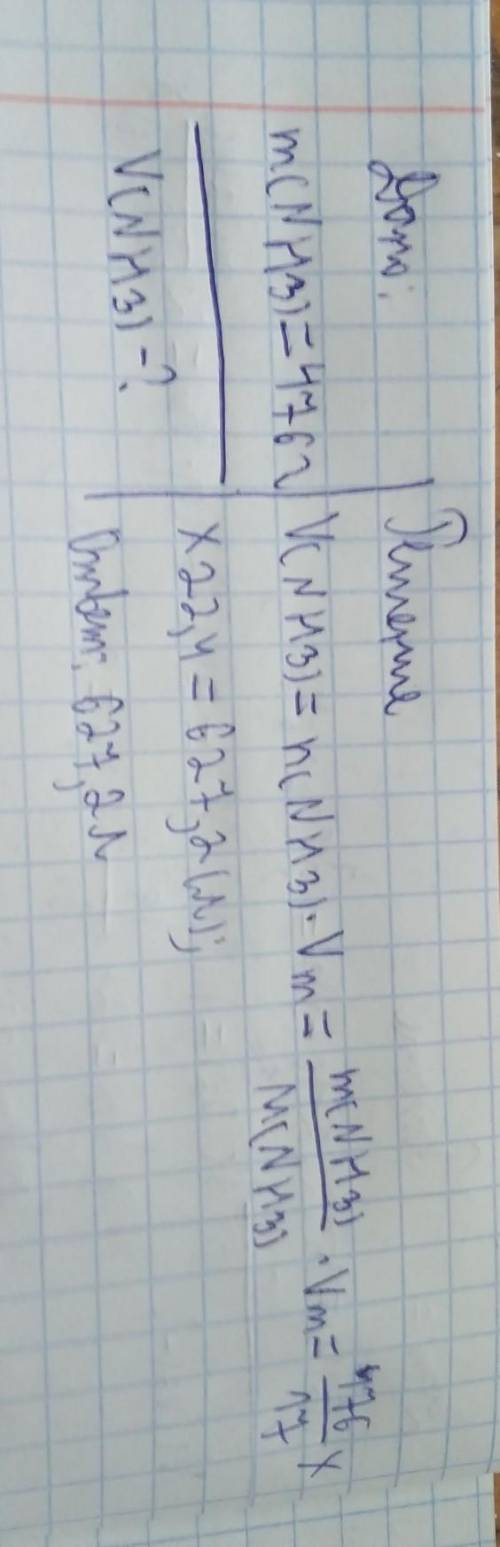 Дано:
m(NH3)=476г
V(NH3)-?
Решение
V(NH3)=n(NH3)·Vm= m(NH3)/M(NH3) ·Vm= 476/17 ×
×22,4=627,2(л);
Ответ: 627,2л